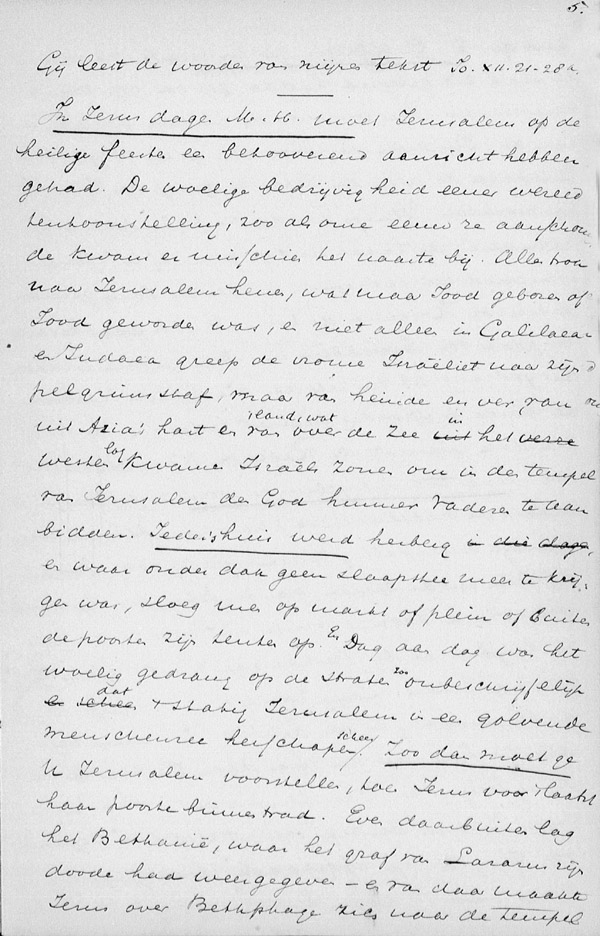 5.
Gij leest de woorden van mijnen tekst Jo. XII. 21-28a.
In Jezus dagen M. H. moet Jeruzalem op de
heilige feesten een betooverend aanzicht hebben
gehad. De woelige bedrijvigheid eener wereld
tentoonstelling, zoo als onze eeuw ze aanschouw
de kwam er misschien het naaste bij. Alles trok
naar Jeruzalem henen, wat maar Jood geboren of
Jood geworden was, en niet alleen in Galilaea
en Judaea greep de vrome Israëliet naar zijn
pelgrimsstaf, maar van heinde en ver, van
uit Azia's hart en van over de zee uit het verre
land, wat in
westen lag kwamen Israëls zonen om in den tempel
van Jeruzalem den God hunner vaderen te aan
bidden. Ieders huis werd herberg in die dagen,
en waar onder dak geen slaapstee meer te krij-
gen was, sloeg men op markt of plein of buiten
de poorten zijn tenten op. En Dag aan dag was het
woelig gedrang op de straten zoo onbeschrijfelijk
en scheen dat + statig Jeruzalem in een golvende
menschenzee herschapen scheen. Zoo dan moet ge
U Jeruzalem voorstellen, toen Jezus voor 't laatst
haar poorten binnentrad. Even daarbuiten lag
het Bethanië, waar het graf van Lazarus zijn
doode had weergegeven – en van daar maakte
Jezus over Bethphage zich naar de tempel